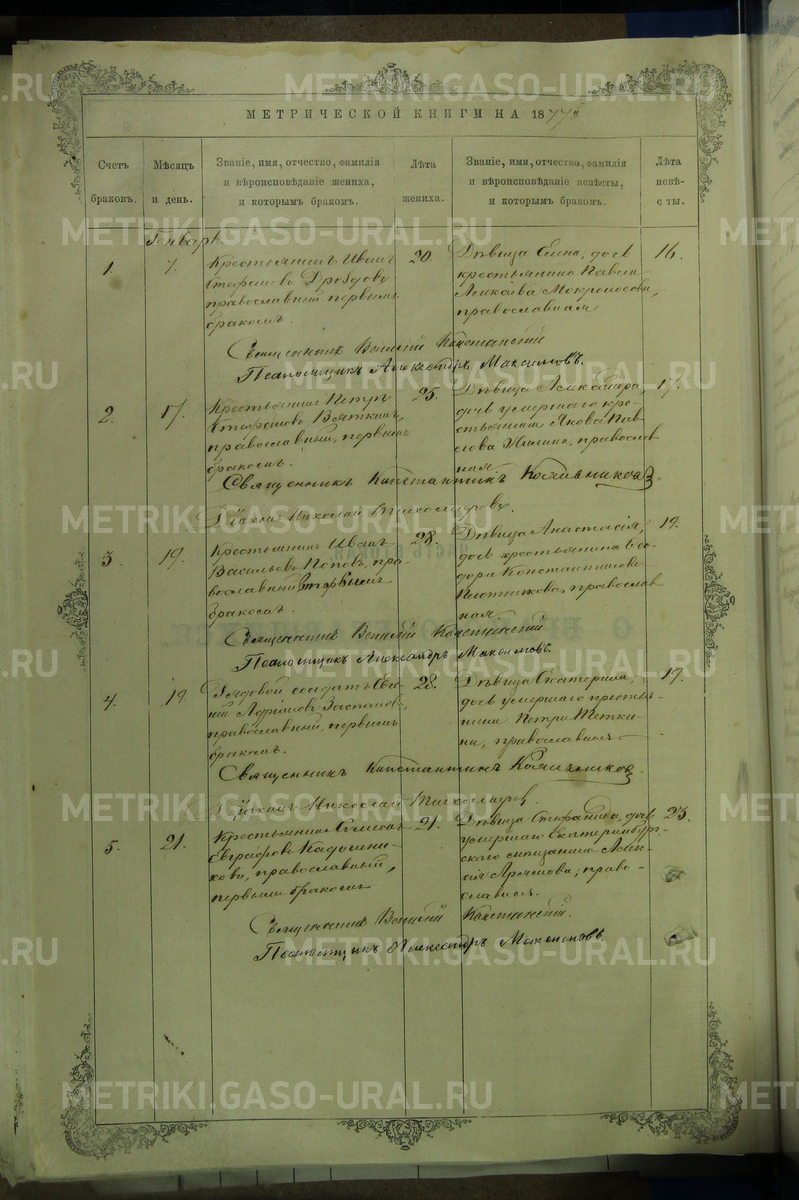 METRIKI.GASO-URAL.RU
МЕТРИЧЕСКОЙ КНИГИ НА 1877
Счетъ браковъ.
Мѣсяцъ и день.
Званіе, имя, отчество, фамилія и вѣроисповѣданіе жениха, и которымъ бракомъ.
Лѣта жениха.
Званіе, имя, отчество, фамилія и вѣроисповѣданіе невѣсты, и которымъ бракомъ.
Лѣта невѣсты.
Генварь
1. 7. Крестьянинъ Иванъ
православный первымъ
бракомъ.
20.
Дѣвица Елена, дочь
крестьянина Павла
Алексѣева Мокроносова,
православная
16.
Священникъ Василій
Псаломщикъ Александръ Максимовъ.
2. 17. Крестьянинъ Петръ
Вяткинъ,
православный, первымъ
бракомъ.
25.
Дѣвица Александра,
дочь умершаго кре-
стьянина Якова Пав-
лова, православ
ная.
17.
Священникъ Константинъ
Діаконъ Николай
3. 19. Крестьянинъ Иванъ
Васильевъ Поповъ, пра-
вославный, первымъ
бракомъ.
28.
Дѣвица Анастасія,
дочь крестьянина Ѳео-
дора Константинова
Плотникова, православ
ная.
19.
Священникъ Василій
Псаломщикъ Александръ Максимовъ.
4. 19. Рядовой солдатъ Евге-
ній Адріановъ
православный, первымъ
бракомъ.
28.
Дѣвица Екатерина,
дочь умершаго крестья-
нина Петра Тетки-
на, православная.
19.
Священникъ Константинъ
Діаконъ Николай
5. 21. Крестьянинъ
Евграфовъ Кадошни-
ковъ, православный,
первымъ бракомъ
21.
Дѣвица Стефанида, дочь
умершаго Екатеринбург-
скаго мѣщанина Алек-
право-
славная.
23.
Священникъ Василій
Псаломщикъ Александръ Максимовъ.